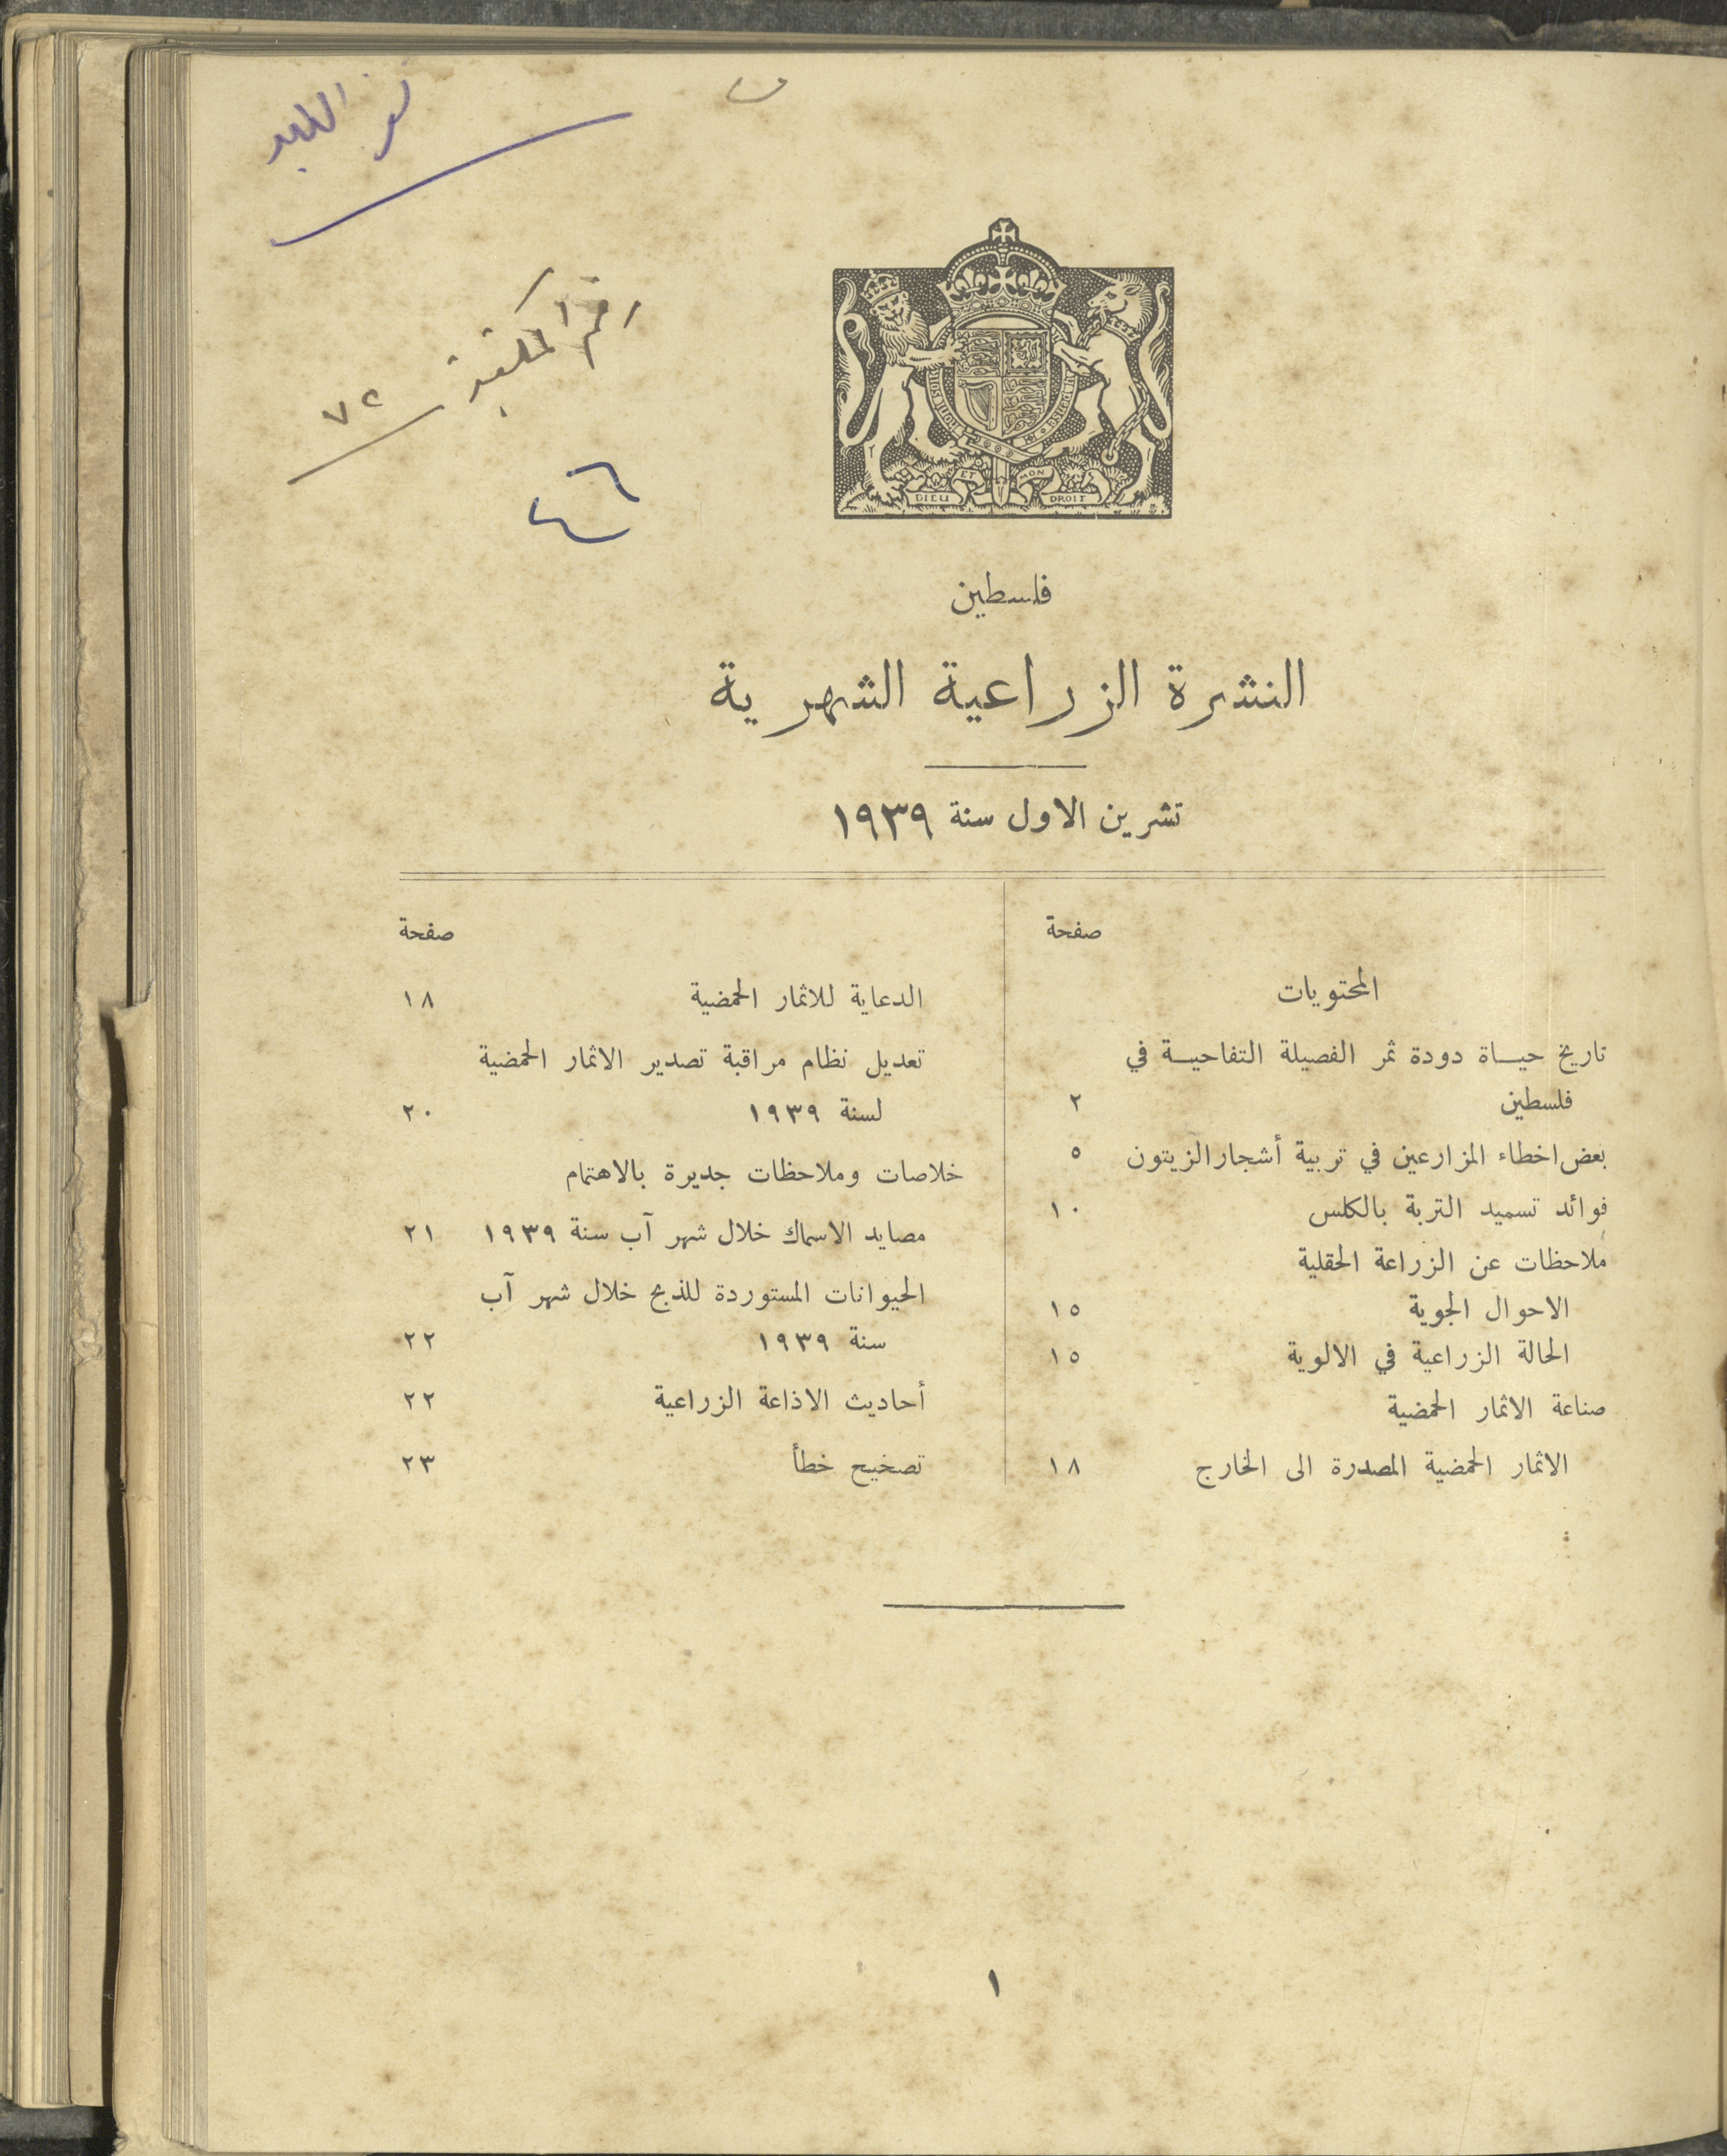 رقم المكتبة ٧٢
فلسطين
النشرة الزراعية الشهرية
تشرين الاول سنة ١٩٣٩
صفحة
المحتويات
تاريخ حيـــاة دودة ثمر الفصيلة التفاحيـــة في
فلسطين ٢
بعض اخطاء المزارعين في تربية أشجار الزيتون ٥
فوائد تسميد التربة بالكلس ١٠
ملاحظات عن الزراعة الحقلية
الاحوال الجوية ١٥
الحالة الزراعية في الالوية ١٥
صناعة الاثمار الحمضية
الاثمار الحمضية المصدرة الى الخارج ١٨
صفحة
الدعاية للاثمار الحمضية ١٨
تعديل نظام مراقبة تصدير الاثمار الحمضية
لسنة ١٩٣٩ ٢٠
خلاصات وملاحظات جديرة بالاهتمام
مصايد الاسماك خلال شهر آب سنة ١٩٣٩ ٢١
الحيوانات المستوردة للذبح خلال شهر آب
سنة ١٩٣٩ ٢٢
أحاديث الاذاعة الزراعية ٢٢
تصخيح خطأ ٢٣
١
DIEU ET MON DROIT